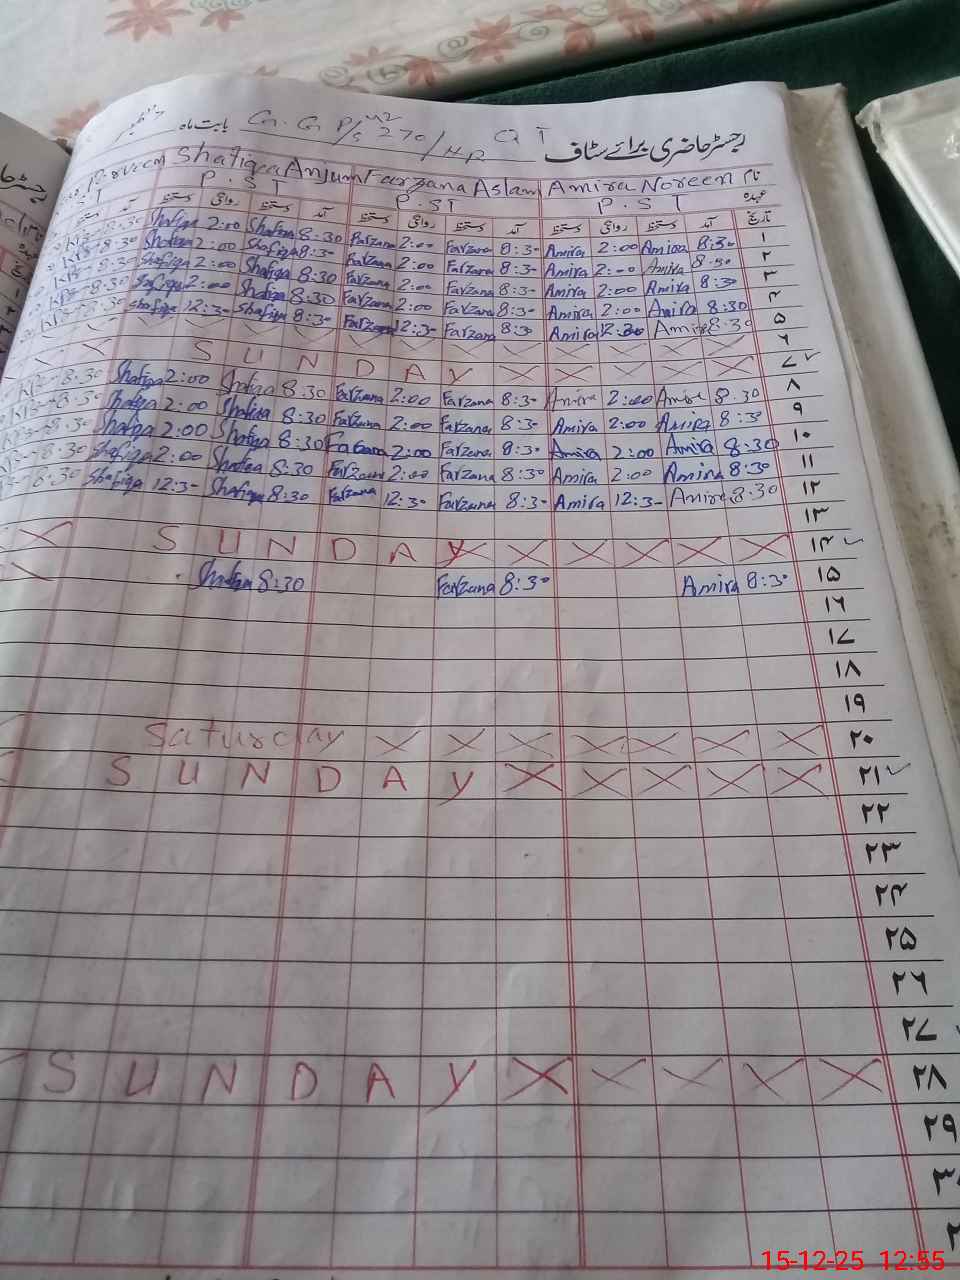 رجسٹر حاضری برائے سٹاف Q T G.G P/S 270/HR بابت ماہ
نام Amira Noreen Farzana Aslam Shafiqa Anjum Parveen
عہدہ P.ST P.ST P.ST
تاریخ آمد دستخط روانگی دستخط آمد دستخط روانگی دستخط آمد دستخط روانگی دستخط آمد دستخط
۱ 8:30 Amira 2:00 Amira 8:30 Farzana 2:00 Farzana 8:30 Shafiqa 2:00 Shafiqa
۲ 8:30 Amira 2:00 Amira 8:30 Farzana 2:00 Farzana 8:30 Shafiqa 2:00 Shafiqa
۳ 8:30 Amira 2:00 Amira 8:30 Farzana 2:00 Farzana 8:30 Shafiqa 2:00 Shafiqa
۴ 8:30 Amira 2:00 Amira 8:30 Farzana 2:00 Farzana 8:30 Shafiqa 2:00 Shafiqa
۵ 8:30 Amira 12:30 Amira 8:30 Farzana 12:30 Farzana 8:30 Shafiqa 12:30 Shafiqa
۶
۷ SUNDAY
۸ 8:30 Amira 2:00 Amira 8:30 Farzana 2:00 Farzana 8:30 Shafiqa 2:00 Shafiqa 8:30
۹ 8:30 Amira 2:00 Amira 8:30 Farzana 2:00 Farzana 8:30 Shafiqa 2:00 Shafiqa 8:30
۱۰ 8:30 Amira 2:00 Amira 8:30 Farzana 2:00 Farzana 8:30 Shafiqa 2:00 Shafiqa 8:30
۱۱ 8:30 Amira 2:00 Amira 8:30 Farzana 2:00 Farzana 8:30 Shafiqa 2:00 Shafiqa 8:30
۱۲ 8:30 Amira 12:30 Amira 8:30 Farzana 12:30 Farzana 8:30 Shafiqa 12:30 Shafiqa 8:30
۱۳
۱۴ SUNDAY
۱۵ 8:30 Amira 8:30 Farzana 8:30 Shafiqa
۱۶
۱۷
۱۸
۱۹
۲۰ Saturday
۲۱ SUNDAY
۲۲
۲۳
۲۴
۲۵
۲۶
۲۷
۲۸ SUNDAY
۲۹
۳۰
15-12-25 12:55